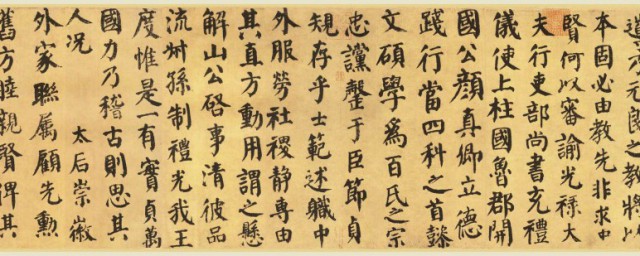 乃元良之教將以
本固必由教先非求中
賢何以審諭光祿大
夫行吏部尚書充禮
儀使上柱國魯郡開
國公顏真卿立德
踐行當四科之首懿
文碩學為百氏之宗
忠讜罄于臣節貞
規存乎士範述職中
外服勞社稷静專由
其直方動用謂之懸
解山公啓事清彼品
流叔孫制禮光我王
度惟是一有實貞萬
國力乃稽古則思其
人況 太后崇徽
外家聯属顧先勲
舊方睦親賢俾其